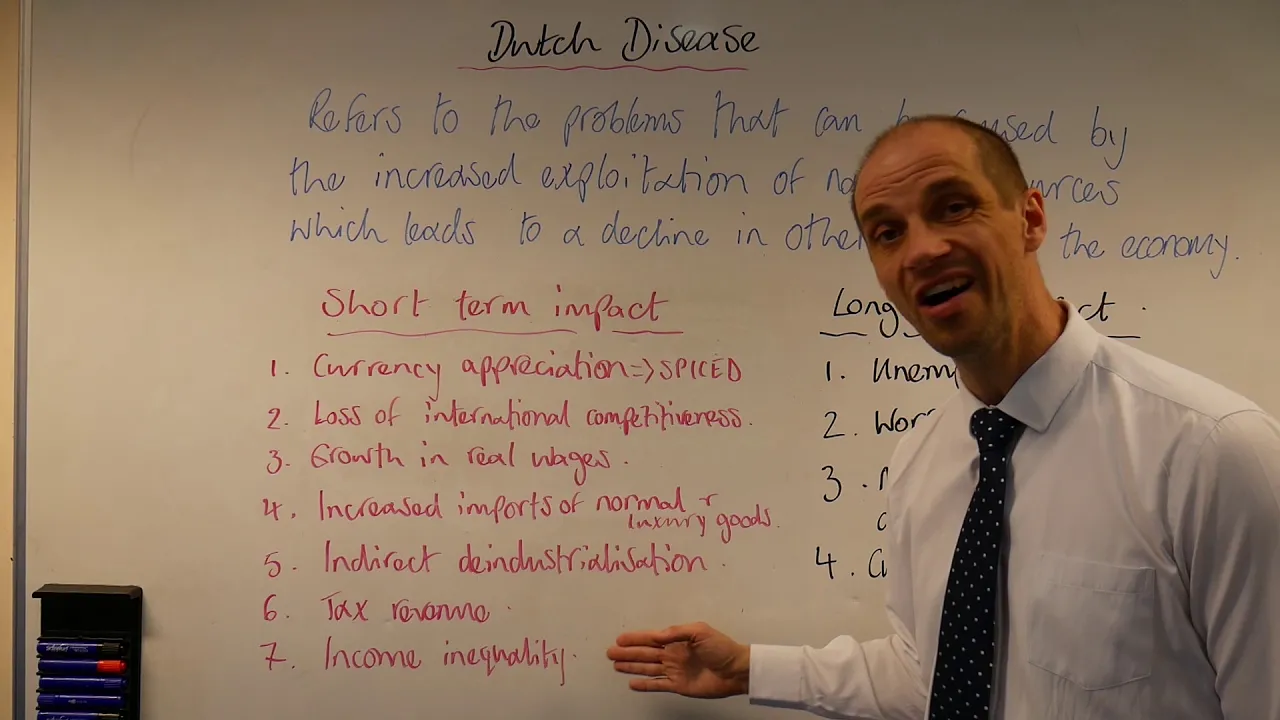 Dutch Disease
Refers to the problems that can by
the increased exploitation of
which leads to a decline in other the economy.
Short term impact
1. Currency appreciation => SPICED
2. Loss of international competitiveness.
3. Growth in real wages.
4. Increased imports of normal +
luxury goods.
5. Indirect deindustrialisation.
6. Tax revenue.
7. Income inequality.
Long
1.
2.
3.
4.